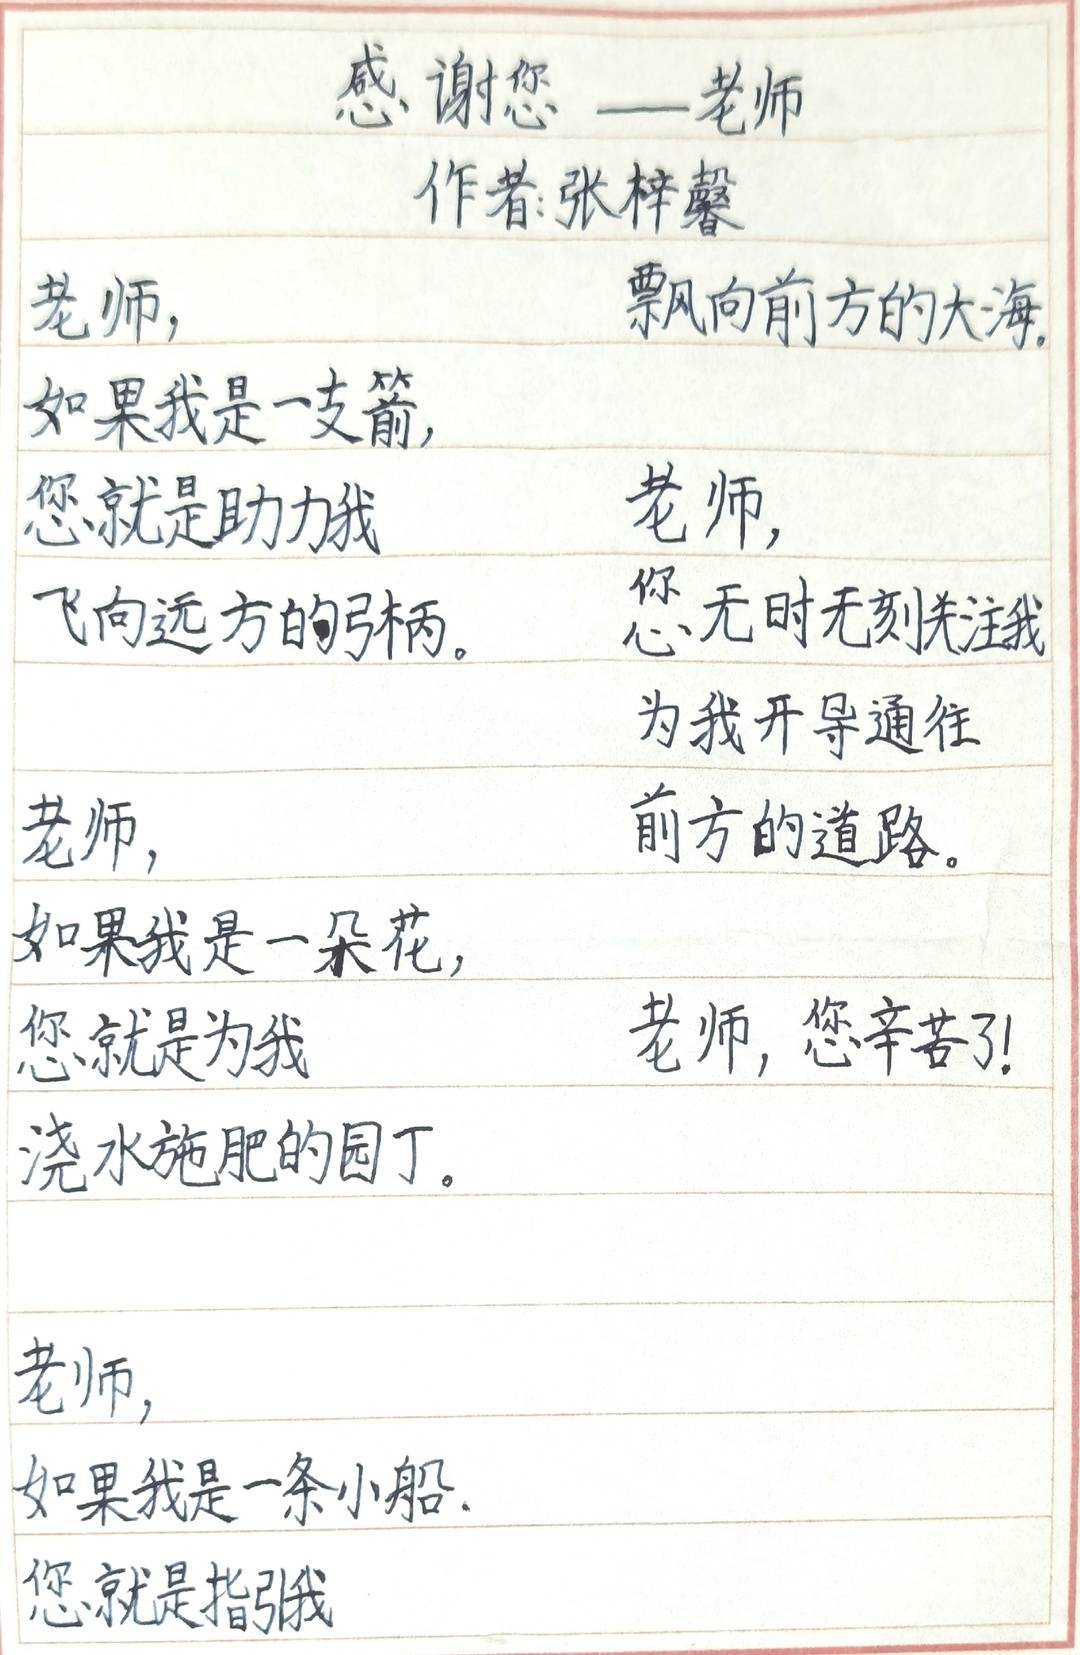 感谢您——老师
作者:张梓馨
老师,
如果我是一支箭,
您就是助力我
飞向远方的弓柄。
老师,
如果我是一朵花,
您就是为我
浇水施肥的园丁。
老师,
如果我是一条小船.
您就是指引我
飘向前方的大海.
老师,
您无时无刻关注我
为我开导通往
前方的道路。
老师,您辛苦了!